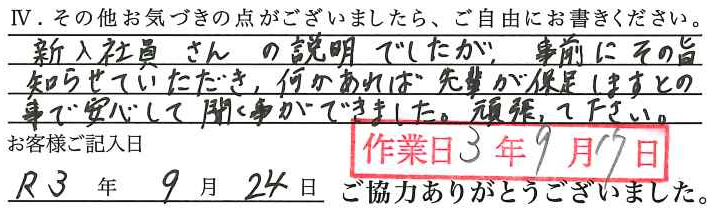 Ⅳ．その他お気づきの点がございましたら、ご自由にお書きください。
新入社員さんの説明でしたが、事前にその旨
知らせていただき、何かあれば先輩が保足しますとの
事で安心して聞く事ができました。頑張って下さい。
お客様ご記入日
作業日3年9月17日
R3年9月24日 ご協力ありがとうございました。